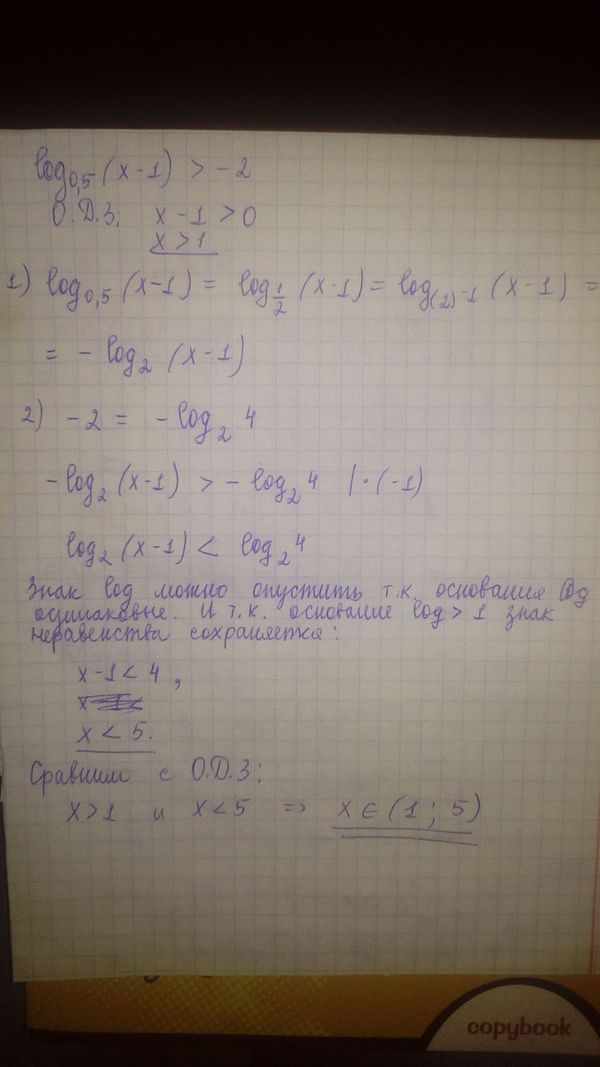 log₀,₅ (x-1) > -2
О.Д.З. x - 1 > 0
x > 1
1) log₀,₅ (x-1) = log_{1/2} (x-1) = log_{(2)^{-1}} (x-1) =
= - log₂ (x-1)
2) -2 = - log₂ 4
-log₂ (x-1) > - log₂ 4 |·(-1)
log₂ (x-1) < log₂ 4
Знак log можно опустить т.к. основания log
одинаковые. И т.к. основание log > 1 знак
неравенства сохраняется:
x-1 < 4,
x < 5.
Сравним с О.Д.З:
x>1 и x<5 => x ∈ (1; 5)
copybook